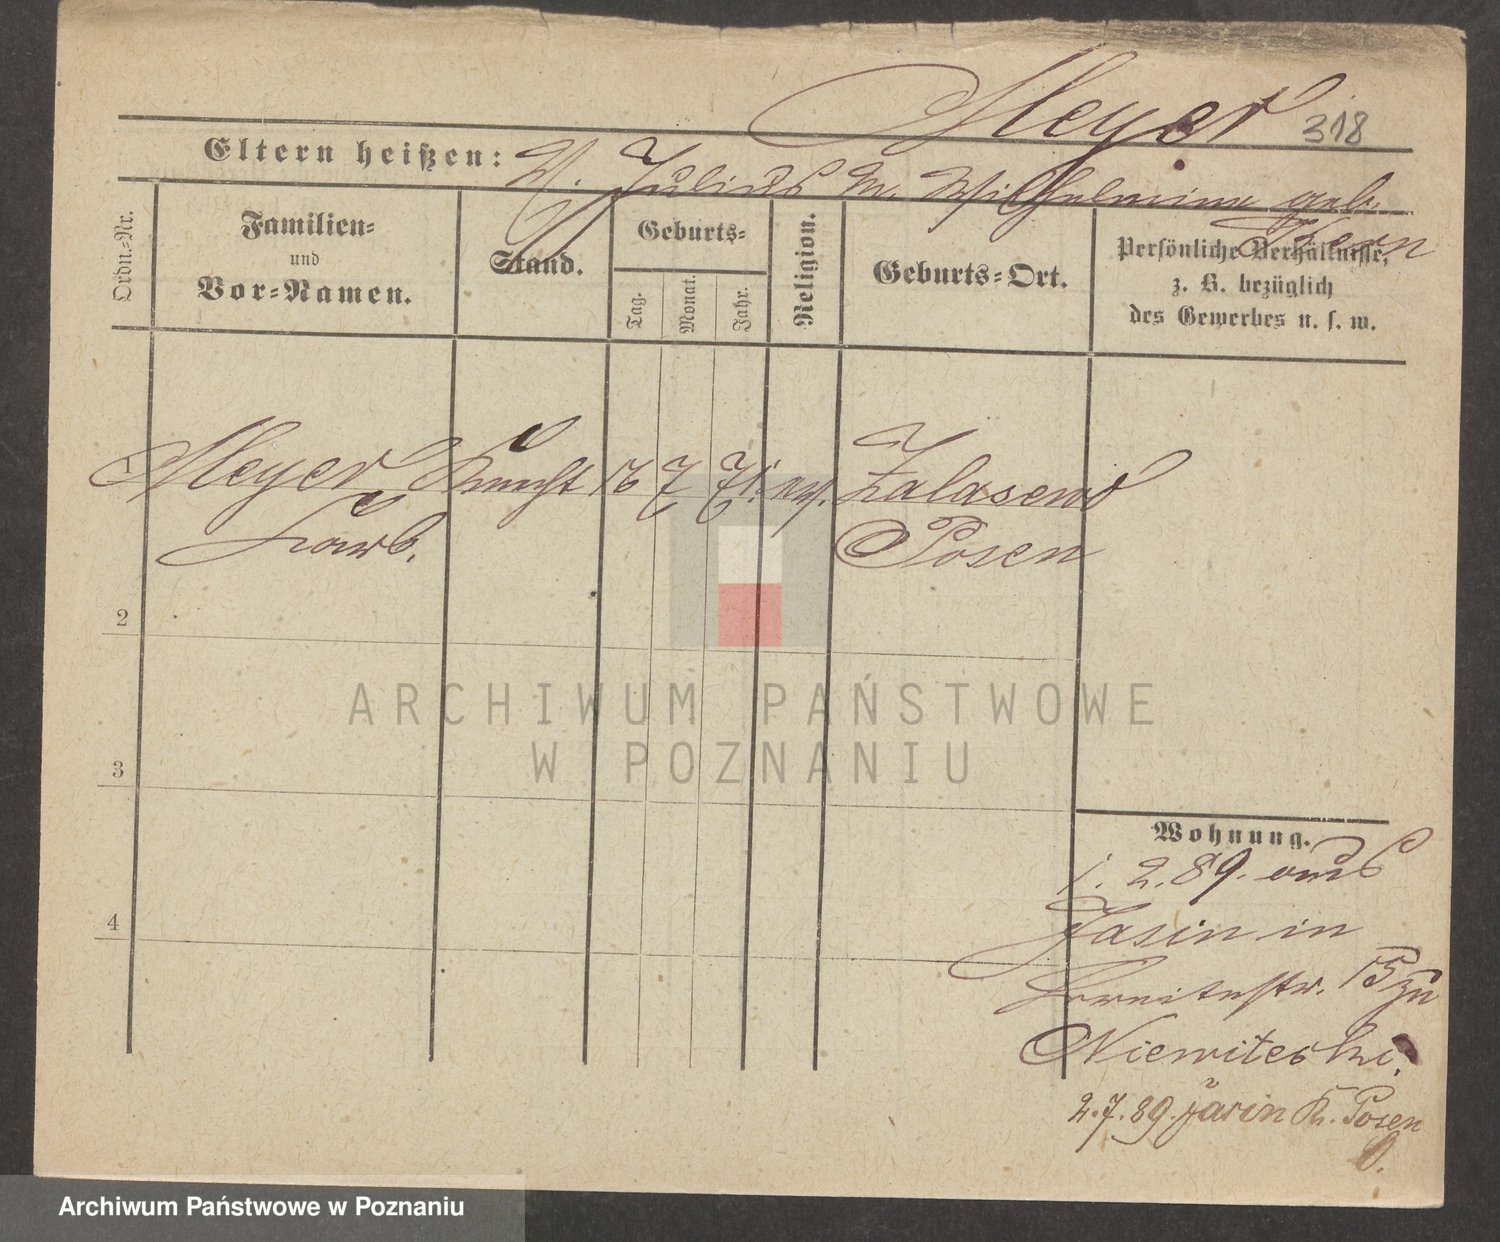 Meyer 318
Eltern heißen: V. Julius M. Wilhelmine geb.
Kern
Ordn.-Nr.
Familien-
und
Vor-Namen.
Stand.
Geburts-
Tag.
Monat.
Jahr.
Religion.
Geburts-Ort.
Persönliche Verhältnisse,
z. B. bezüglich
des Gewerbes u. s. w.
1 Meyer Knecht 16 7 71. ev. Zalasewo
Posen
2
3
4
Wohnung.
1. 2. 89. aus
Jasin in
Breitestr. 15 zu
2. 7. 89. Jasin K. Posen
ARCHIWUM PAŃSTWOWE
W POZNANIU
Archiwum Państwowe w Poznaniu